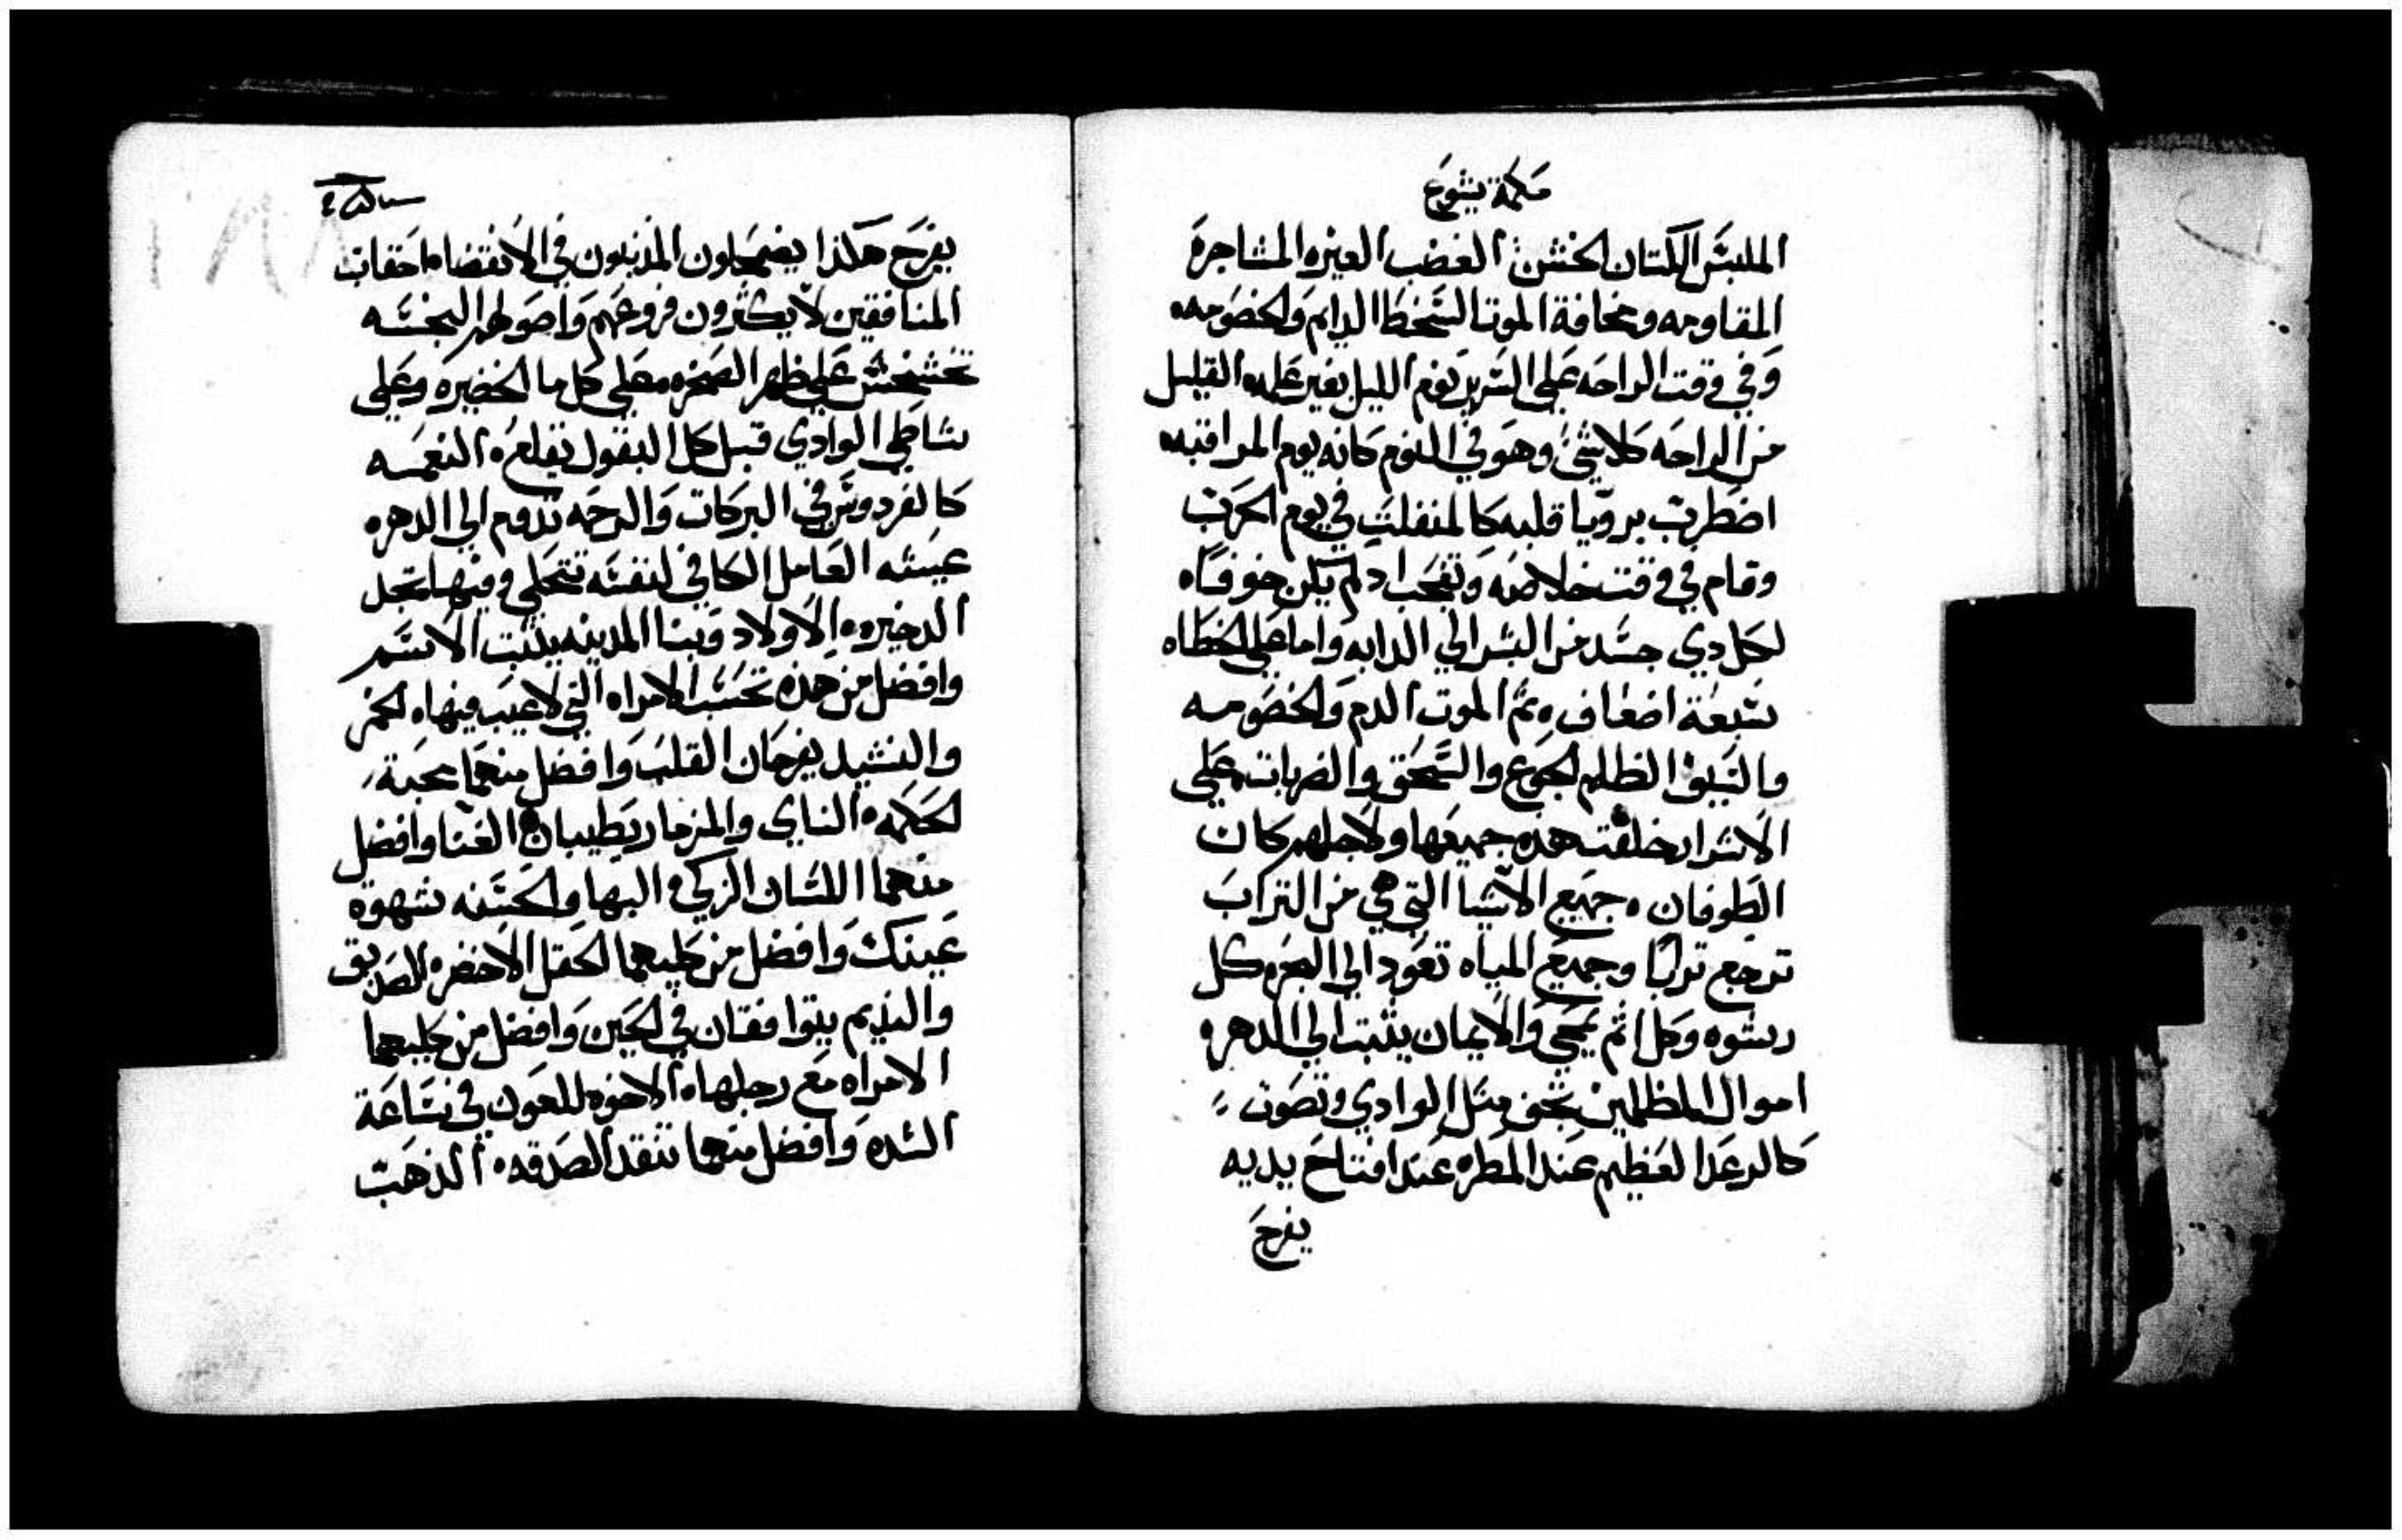 حكمة يشوع
الملبس الكتان الخشن الغضب الغيره المشاجرة
المقاومه ومخافة الموت السخط الدايم والخصومه
وفي وقت الراحه على السرير نوم الليل يغير علمه القليل
من الراحه كلا شي وهو في النوم كانه يوم المراقبه
اضطربت برويا قلبه كالمنفلت في يوم الحرب
وقام في وقت خلاصه وتعجب اد لم يكن خوفاه
لكل دي جسد من البشر الي الدابه واما على الخطاه
سبعة اضعاف ثم الموت الدم والخصومه
والسيف الظلم الجوع والسحق والضربات على
الاشرار خلقت هده جميعها ولاجلهم كان
الطوفان جميع الاشيا التي هي من التراب
ترجع ترابًا وجميع المياه تعود الي البحر كل
رشوه وكل اثم يمحي والايمان يثبت الي الدهر
اموال الظالمين تجف مثل الوادي وتصوت
كالرعد العظيم عند المطر عند افتتاح يديه
يفرح
يفرح هكذا يضمحلون المذنبون في الانقضا احقاب
المنافقين لا يكثرون فروعهم واصولهم النجسه
تخشخش على ظهر الصخره على كل ما الخضيره وعلى
شاطي الوادي قبل كل البقول تقلع النعمه
كالفردوس في البركات والرحمه تدوم الي الدهر
عيشه العامل الكافي لنفسه تتحلي وفيها تجد
الدخيره الاولاد وبنا المدينه يثبت الاسم
وافضل من هذه تحسب الامراه التي لا عيب فيها الخمر
والنشيد يفرحان القلب وافضل منهما محبة
الحكمه الناي والمزمار يطيبان الغنا وافضل
منهما اللسان الزكي البها والحسنه شهوة
عينك وافضل من كليهما الحقل الاخضر الصديق
والنديم يتوافقان في الحين وافضل من كليهما
الامراه مع رجلها الاخوه للعون في ساعة
الشده وافضل منهما تنقد الصدقه الذهب